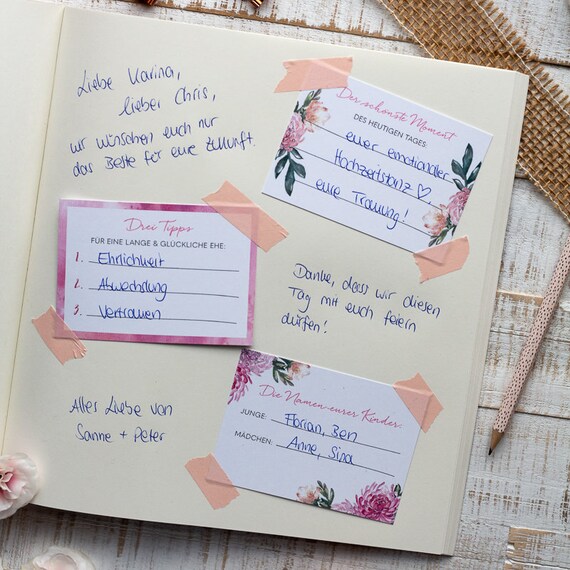 Liebe Karina,
lieber Chris,
wir wünschen euch nur
das Beste für eure Zukunft.
Der schönste Moment
DES HEUTIGEN TAGES:
euer emotionaler
Hochzeitstanz ♡,
eure Trauung!
Drei Tipps
FÜR EINE LANGE & GLÜCKLICHE EHE:
1. Ehrlichkeit
2. Abwechslung
3. Vertrauen
Danke, dass wir diesen
Tag mit euch feiern
dürfen!
Alles Liebe von
Sanne + Peter
Die Namen eurer Kinder:
JUNGE: Florian, Ben
MÄDCHEN: Anne, Sina